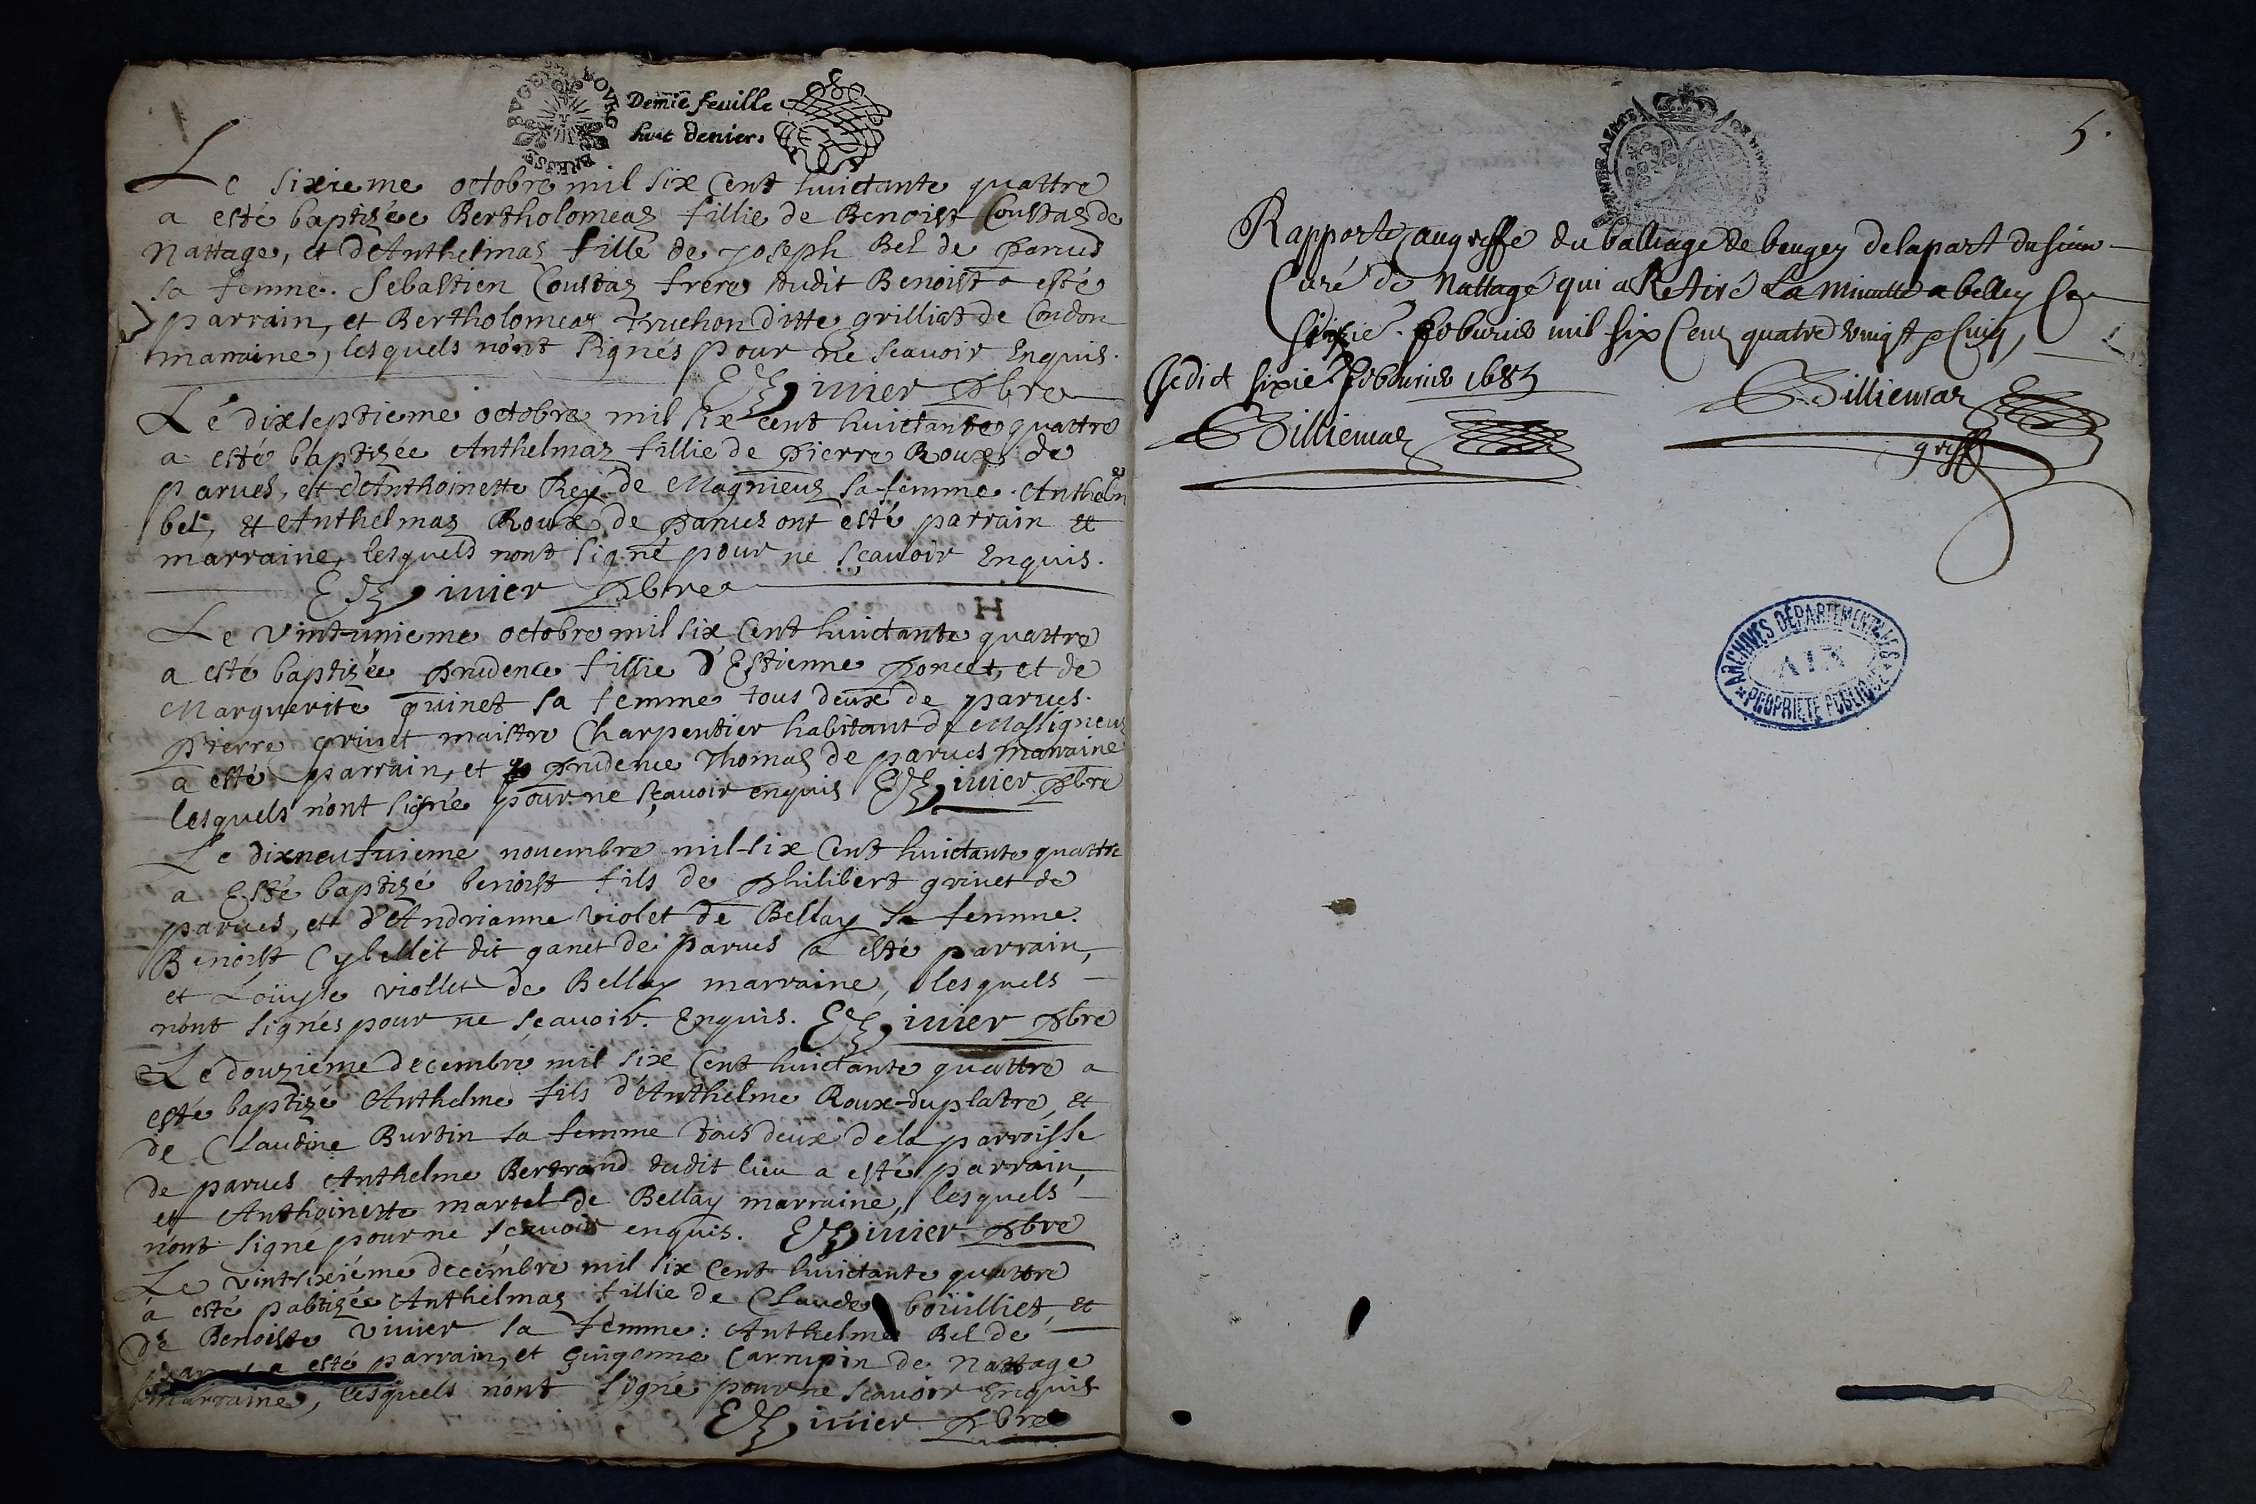 BVGEY BOVRG BRESSE
Demie feuille
huit deniers
Le sixieme octobre mil six Cent huictante quattre
a esté baptizéee Bertholomeaz fillie de Benoist Coustaz de
Nattage, et dAnthelmaz fille de Joseph Bel de Parues
sa femme. Sebastien Coustaz frere dudit Benoist a esté
parrain, et Bertholomeaz Truchon ditte grilliat de Condon
marraine, lesquels n'ont signés pour ne scauoir Enquis.
iuier Pbre
Le dixseptieme octobre mil six cent huictante quattre
a esté baptizée Anthelmaz fillie de Pierre Roux de
parues, et dAnthoinette Rey de Magnieuz sa femme. Anthelm
bel, et Anthelmaz Roux de Parues ont esté parrain et
marraine, lesquels nont signé pour ne sçauoir Enquis.
iuier Pbre
Le vintunieme octobre mil six Cent huictante quattre
a esté baptizée Prudence fillie d'Estienne Poncet, et de
Marguerite quinet sa femme tous deux de parues.
Pierre grivet maistre Charpentier habitant de Massigneuz
a esté parrain, et Prudence Thomaz de parues marraine
lesquels n'ont signé pour ne sçauoir enquis iuier Pbre
Le dixneufuieme nouembre mil six Cent huictante quattre
a Esté baptizé benoist fils de Philibert grivet de
parues, et d'Andrianne violet de Bellay sa femme.
Benoist Cybellet dit ganet de parues a esté parrain,
et Loüyse viollet de Bellay marraine, lesquels
n'ont signés pour ne sçauoir. Enquis. iuier Pbre
Le douzième decembre mil six Cent huictante quattre a
esté baptizé Anthelme fils d'Anthelme Roux-duplatre, et
de Claudine Burtin sa femme tous deux de la parroisse
de parues Anthelme Bertrand dudit lieu a esté parrain,
et Anthoinette martel de Bellay marraine, lesquels
n'ont signe pour ne sçauoir enquis. iuier Pbre
Le vintsixiéme decembre mil six Cent huictante quattre
a esté pabtizée Anthelmaz fillie de Claude boüilliet, et
de Benoiste viuier sa femme: Anthelme Bel de
parues a esté parrain, et guigonne Carrupin de Nattage
marraine, lesquels n'ont signé pour ne scauoir Enquis
iuier Pbre
5.
Rapporté au greffe du balliage de beugey de la part du sieur
Curé de Nattage qui a Retiré La Minutte a belley Ce
sixie. feburier mil six Cent quatre vingt et Cinq,
Cedict sixie. feburier 1685
Billiemaz
Billiemaz
greff
ARCHIVES DÉPARTEMENTALES
AIN
PROPRIÉTÉ PUBLIQUE